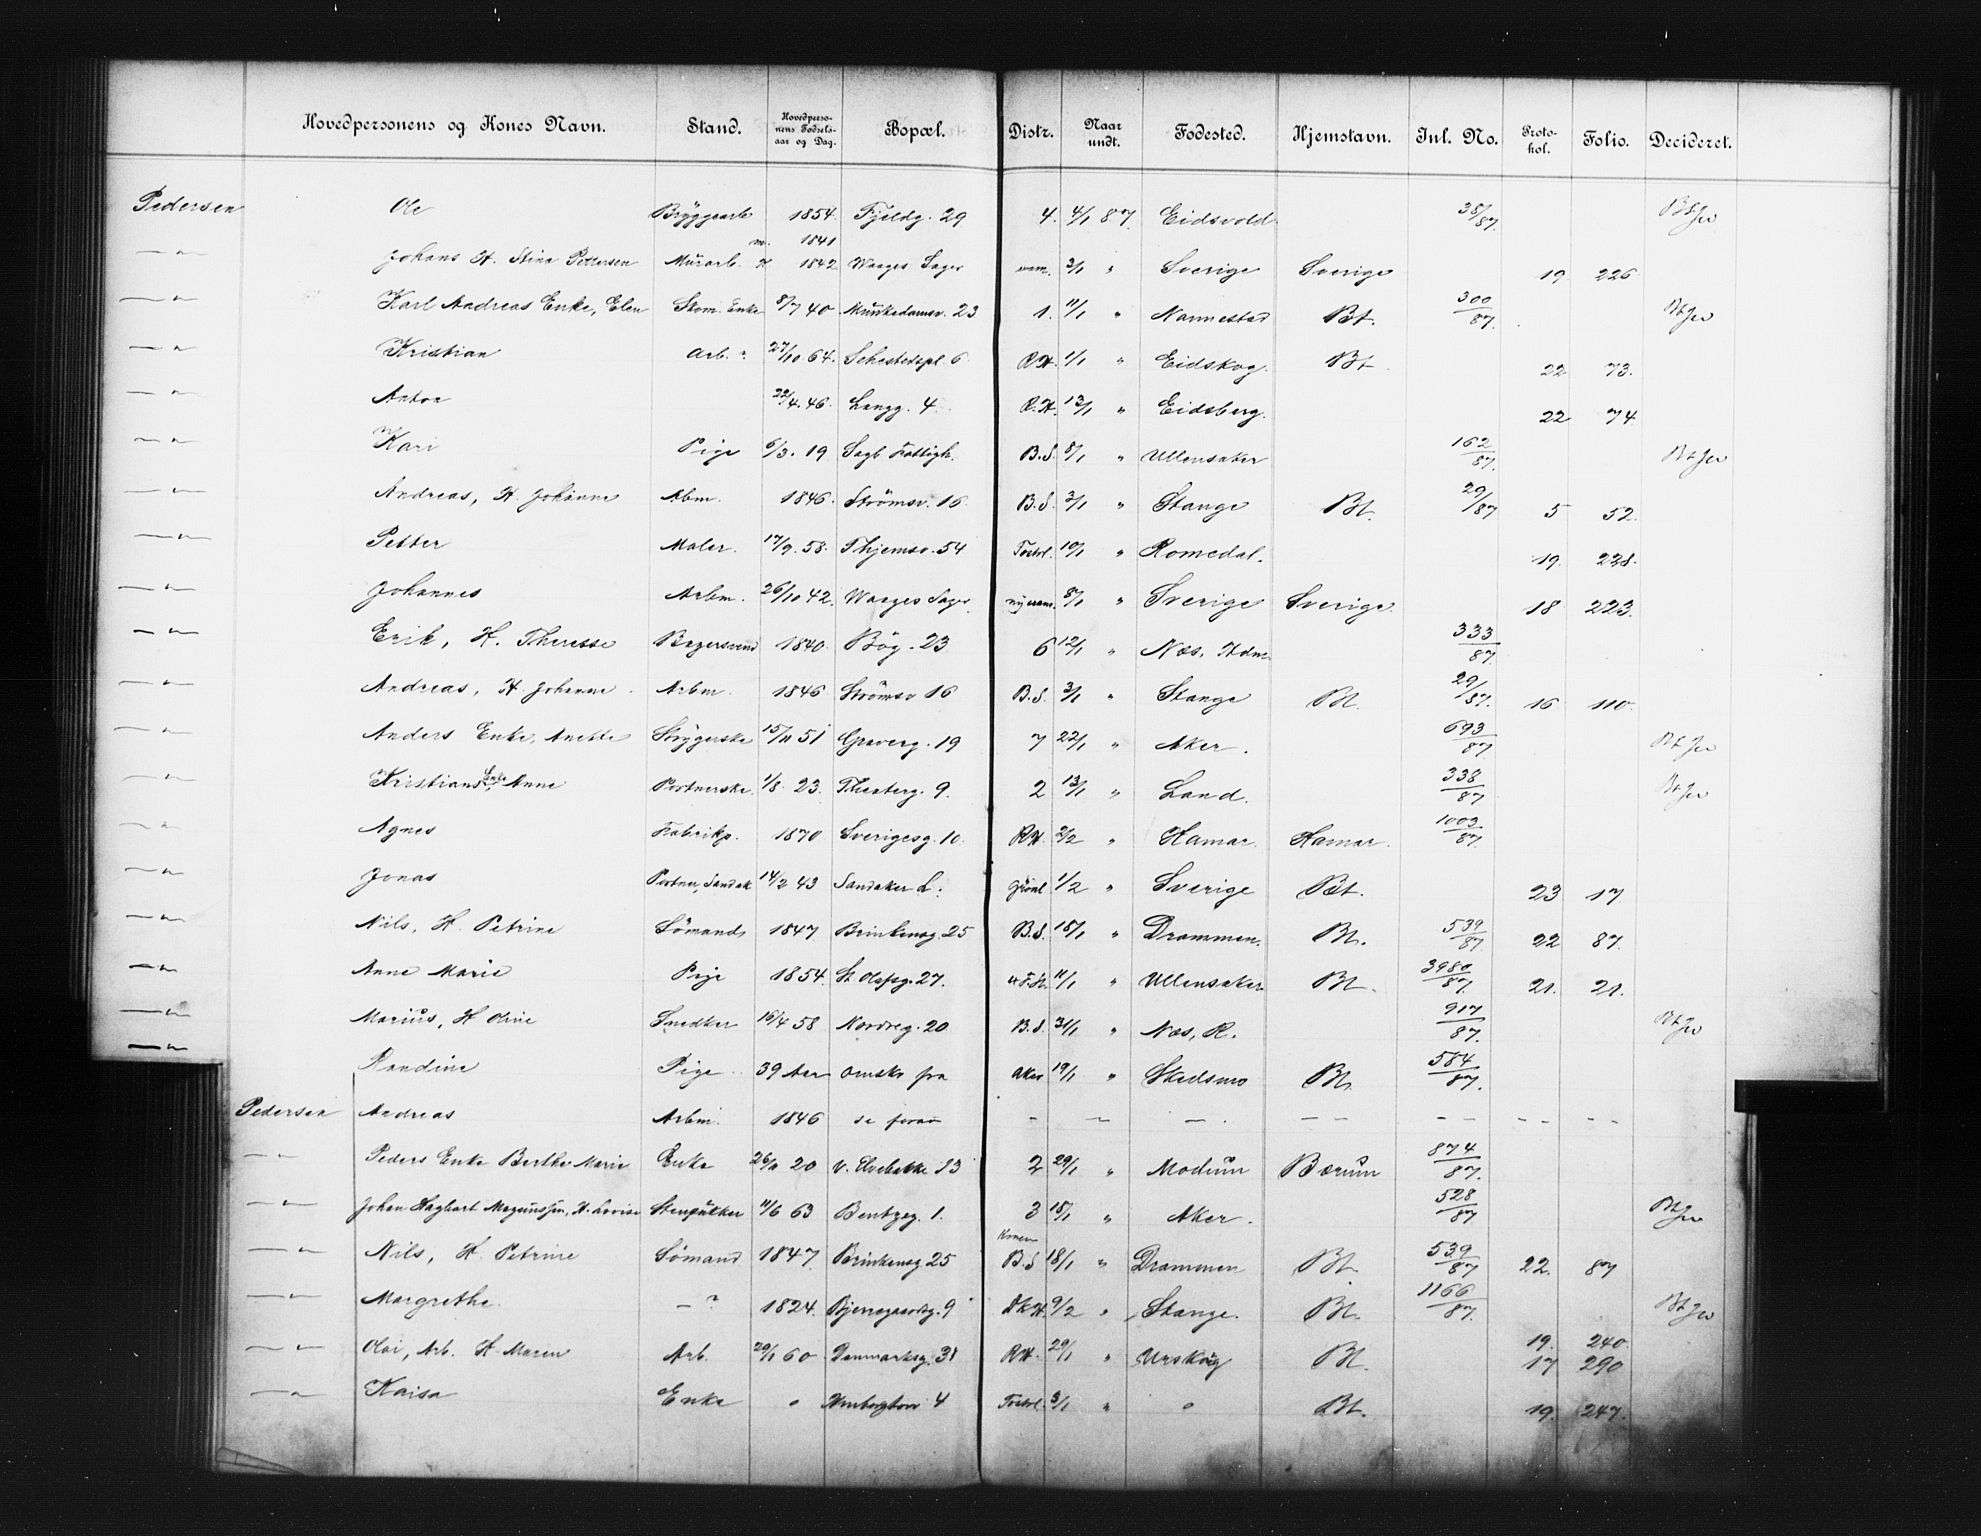 Hovedpersonens og Kones Navn. Stand. Hovedpersonens Fødselsaar og Dag. Bopæl. Distr. Naar undt. Fødested. Hjemstavn. Jnl. No. Protokol. Folio. Decideret.
Pedersen Ole Bryggearb 1854. Fjeldg. 29 4. 4/1 87. Eidsvold 38/87.
— " — Johans H. Stina Pettersen Murarb. m. 1841 H 1842 Waages Sager 3/1 " Sverige Sverige 19 226
— " — Karl Andreas Enke, Elen Skom. Enke 8/7 40. Munkedamsv. 23 1. 11/1 " Nannestad Bt. 300/87. Bt Jw
— " — Kristian Arb. ? 27/10 64. Sehestedspl. 6 R.H. 1/1 " Eidskog. Bt 22 73.
— " — Anton 22/4. 46. Langg. 4. R.H. 13/1 " Eidsberg. 22 74.
— " — Kari Pige 6/3. 19 Sagb Fattigh. B.S. 8/1 " Ullensaker 162/87. Bt Jw
— " — Andreas, H. Johanne Arbm. 1846. Strömsv. 16. B.S. 3/1 " Stange Bt. 29/87 5 52.
— " — Petter Maler. 17/9. 58. Thjemsv. 54 10/1 " Romedal. 19. 228.
— " — Johannes Arbm. 26/10 42. Waages Sager 8/1 " Sverige Sverige. 18 223.
— " — Erik, H. Therese Bagersvend 1840. Bög. 23 6 12/1 " Næs, Hdm 333/87
— " — Andreas, H Johanne Arbm. 1846 Strömsv 16 B.S. 3/1 " Stange Bt. 29/87. 16 110.
— " — Anders Enke, Anette Strygerske 15/11 51 Graverg. 19 7 22/1 " Aker. 693/87. Bt Jw
— " — Kristians Enke, Anne Portnerske 1/8. 23. Theaterg. 9. 2 13/1 " Land. 338/87 Bt Jw
— " — Agnes Fabrikp. 1870 Sverigesg. 10. RH. 2/2 " Hamar. Hamar. 1003/87.
— " — Jonas Portner, Sandak 14/2 43 Sandaker L. Grönl 1/2 " Sverige Bt. 23 17.
— " — Nils, H. Petrine Sömand 1847 Brinkensg. 25 B.S. 18/1 " Drammen. Bt. 539/87. 22 87.
— " — Anne Marie Pige 1854. St Olafsg. 27. 11/1 " Ullensaker Bt. 3980/87. 21. 21.
— " — Marius, H Oline Snedker 16/4 58 Nordreg. 20 B.S. 31/1 " Næs, R. 917/87. Bt Jw
— " — Randine Pige 39 Aar Omsk. fra Aker 19/1 " Skedsmo Bt. 584/87.
Pedersen Andreas Arbm. 1846 se foran — — — — — — — — — —
— " — Peders Enke Berthe Marie Enke 26/11 20 v. Elvebakke 13 2 29/1 " Modum Bærum 874/87.
— " — Johan Hagbart Magnussen, H. Lovise Stenpukker 11/6 63 Bentzeg. 1. 3 18/1 " Aker. 528/87 Bt Jw
— " — Nils, H. Petrine Sömand 1847. Brinkensg 25 Konen B.S 18/1 " Drammen Bt. 539/87 22. 87
— " — Margrethe — ? 1824. Bjerregaardsg. 9 9/2 " Stange. Bt. 1166/87. Bt Jw
— " — Olai, Arb. H. Maren Arb. 29/1 60 Danmarksg. 31 RH. 29/1 " Urskoug Bt. 19. 240. 17 290
— " — Kaisa Enke " 4 3/1 " " Bt. 19. 247.